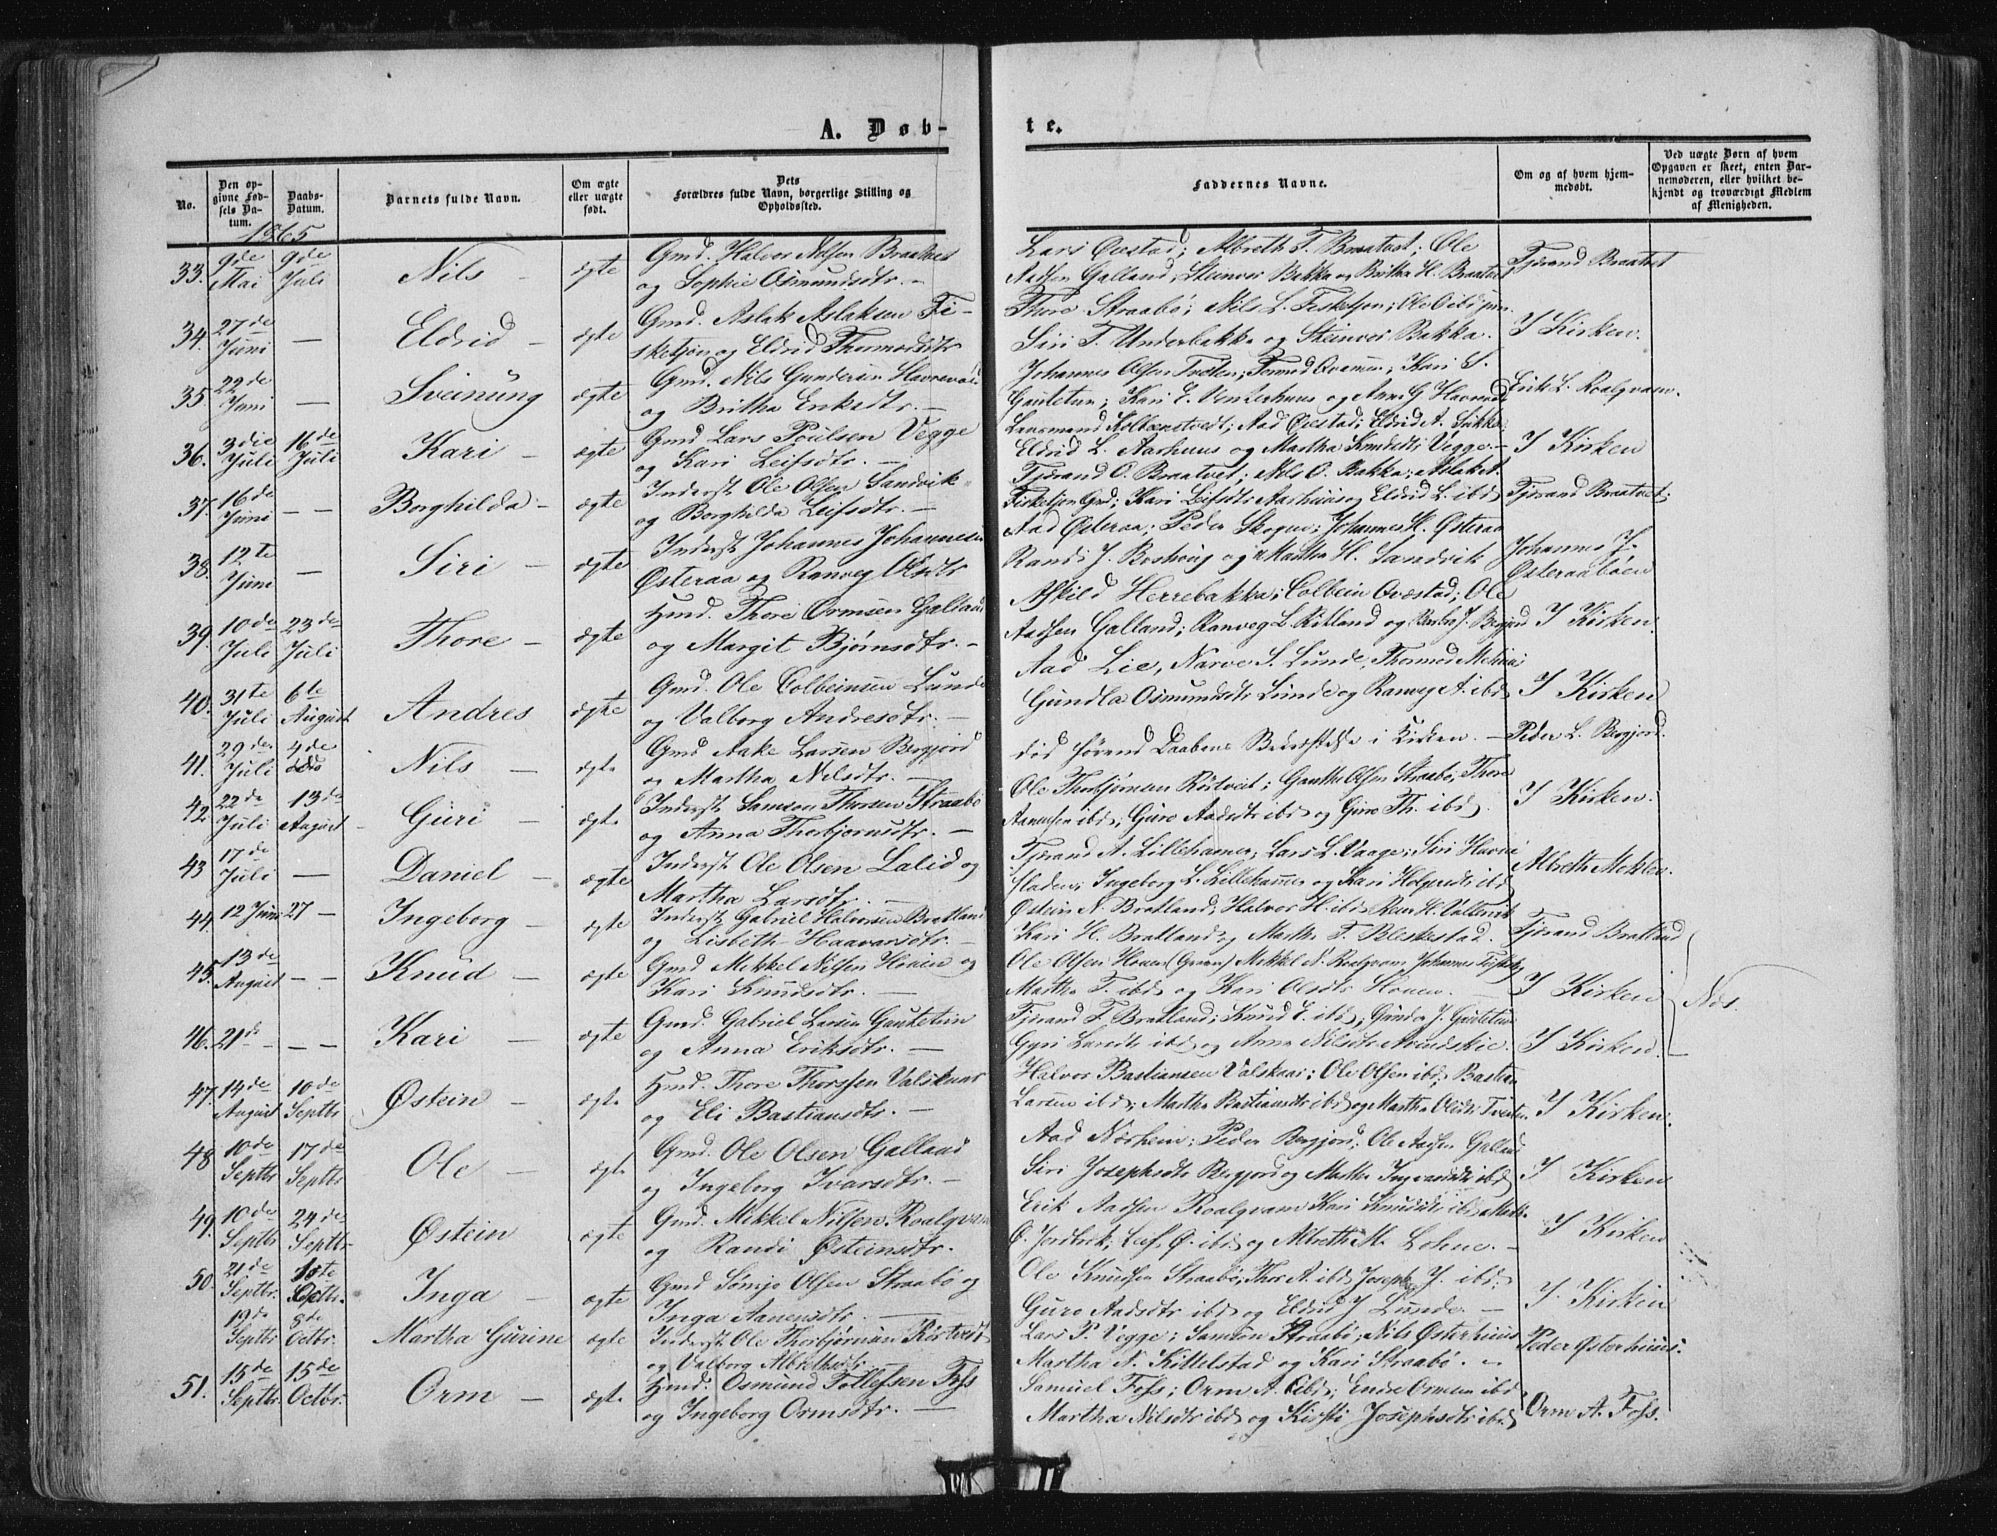 A. Døb-
te.
No.
Den op-
givne Fød-
sels Da-
tum.
Daabs-
Datum.
Barnets fulde Navn.
Om ægte
eller uægte
født.
Dets
Forældres fulde Navn, borgerlige Stilling og
Opholdssted.
Faddernes Navne.
Om og af hvem hjem-
medøbt.
Ved uægte Børn af hvem
Opgaven er skeet, enten Bar-
nemoderen, eller hvilket be-
kjendt og troværdigt Medlem
af Menigheden.
1865
33. 9de Mai 9de Juli Nils - ægte
Gmd. Halvor Nilsen Braatvet
og Sophie Osmundsdtr. -
Lars Qvæstad; Albreth T. Braatvet; Ole
Aadsen Galland; Steinver Bakka og Britha H. Braatvet
Tjerand Braatvet
34. 27de Juni — Eldrid - ægte
Gmd. Aslak Aslaksen Fi-
sketjøn og Eldrid Thormodsdtr
Thore Straabø; Nils L. Fisketjøn; Ole O ibd;
Siri T. Underbakke og Steinver Bakka.
I Kirken.
35 29de Juni — Sveinung ægte
Gmd. Nils Gundersen Havrevold
og Britha Eriksdtr. -
Johannes Olsen Træen; Tormod Qvamen; Kari S.
Gautetun; Kari E. Vinterhuus og Anna G Havrevold
Erik L. Roalqvam.
36. 3die Juli 16de Juli Kari - ægte
Gmd Lars Poulsen Vegge
og Kari Leifsdtr. -
Lensmand Kolbeinstvedt; Aad Qvæstad; Eldrid A.
Eldrid L. Aarhuus og Martha Knudsdtr Vegge. -
I Kirken
37. 16de Juni — — Borghilda - ægte
Inderst Ole Olsen Sandvik
og Borghilda Leifsdtr. -
Tjerand O. Braatvet; Nils O. Bakka; Aslak A.
Fisketjøn Gmd; Kari Leifsdtr Aarhuus og Eldrid L. ibd
Tjerand Braatvet;
38. 12te Juni — Siri - ægte
Inderst Johannes Johannesen
Østeraa og Ranveg Olsdtr
Aad Østeraa; Peder Skogen; Johannes H. Østeraa
Randi J. Bostveig og Martha H. Sandvik
Johannes J.
Østeraabøen
39. 10de Juli 23de Juli Thore - ægte
Hmd. Thore Ormsen Galland
og Margit Bjørnsdtr. -
Afkild Herrebakka; Colbein Qvæstad; Ole
Aadsen Galland; Ranveg L. Ritland og J. Bergjord
I Kirken.
40. 31te Juli 6te August Andres ægte
Gmd. Ole Colbeinsen Lunde
og Valborg Andresdtr. -
Aad Lie, Narve S. Lunde, Thormod
Gundla Osmundsdtr Lunde og Ranveg A. ibd
I Kirken
41. 29de Juli 4de Nils - ægte
Gmd Aake Larsen Bergjord
og Martha Nilsdtr. -
død førend Daabens Bekræftelse i Kirken. -
Peder L. Bergjord.
42. 22de Juli 13de August Guri - ægte
Inderst Samson Thorsen Straabø
og Anna Thorbjørnsdtr. -
Ole Thorbjørnsen Røstveit; Gauthe Olsen Straabø; Thore
Aanensen ibd; Guro Aadsdtr ibd og Guro Th. ibd.
I Kirken.
43 17de Juli — Daniel - ægte
Inderst Ole Olsen Lalid og
Martha Larsdtr. -
Tjerand A. Lillehamer; Lars L. Vaage; Siri
Ingeborg L. Lillehamer og Kari Holgersdtr ibd
Albreth Mehlen.
44. 12 Juni 27 — Ingeborg - ægte
Inderst Gabriel Halvorsen Bratland
og Lisbeth Haavarsdtr. -
Østein N. Bratland; Halvor H. ibd;
Kari H. Bratland og Martha T. Bleskestad.
Tjerand Bratland
45. 13de August — — Knud - ægte
Gmd Mekkel Nilsen Hoien og
Kari Knudsdtr. -
Ole Olsen Houen (Graven) Mekkel N. Roalqvam; Johannes
Martha T. ibd og Kari Olsdtr Houen.
I Kirken
Næs.
46. 21de — — Kari - ægte
Gmd. Gabriel Larsen Gautetun
og Anna Eriksdtr. -
Tjerand T. Bratland; Knud E. ibd; Gunder J. Gautetun
Gyri Larsdtr ibd og Anna Nilsdtr
I Kirken. -
47. 14de August 10de Septbr Østein - ægte
Hmd. Thore Thorssen Valskaar
og Eli Bastiansdtr. -
Halvor Bastiansen Valskaar; Ole Olsen ibd; Bastian
Larsen ibd; Martha Bastiansdtr ibd og Martha Olsdtr
I Kirken.
48 10de Septbr 17de Septbr Ole - ægte
Gmd. Ole Olsen Galland
og Ingeborg Ivarsdtr. -
Aad Norheim; Peder Bergjord; Ole Aadsen Galland
Siri Josephsdtr Bergjord og Martha Ingvaldsdtr ibd
I Kirken
49. 10de Septbr 24de Septbr. Østein ægte
Gmd. Mekkel Nilsen Roalqvam
og Randi Østeinsdtr.
Erik Aadsen Roalqvam Kari Knudsdtr ibd
Ø. Jordbrek; Leif Ø. ibd og Albreth M. Lohne. -
I Kirken
50. 21de Septbr. 1ste Octbr. Inga - ægte
Gmd Sømje Olsen Straabø og
Inga Aanensdtr. -
Ole Knudsen Straabø; Thor A. ibd Joseph J. ibd.
Guro Aadsdtr ibd og Eldrid J Lunde -
I. Kirken
19de Septbr 8de Octbr. Martha Gurine ægte
Inderst Ole Thorbjørnsen Røstveit
og Valborg Albrethsdtr.
Lars P. Vegge; Samson Straabø; Nils Østerhuus
Martha N. Kittelstad og Kari Straabø. -
Peder Østerhuus.
51. 15de Septbr. 15de Octbr. Orm - ægte
Hmd. Osmund Tollefsen Foss
og Ingeborg Ormsdtr. -
Samuel Foss; Orm A. ibd; Endre Ormsen ibd
Martha Nilsdtr ibd og Kirsti Josephsdtr ibd
Orm A. Foss.